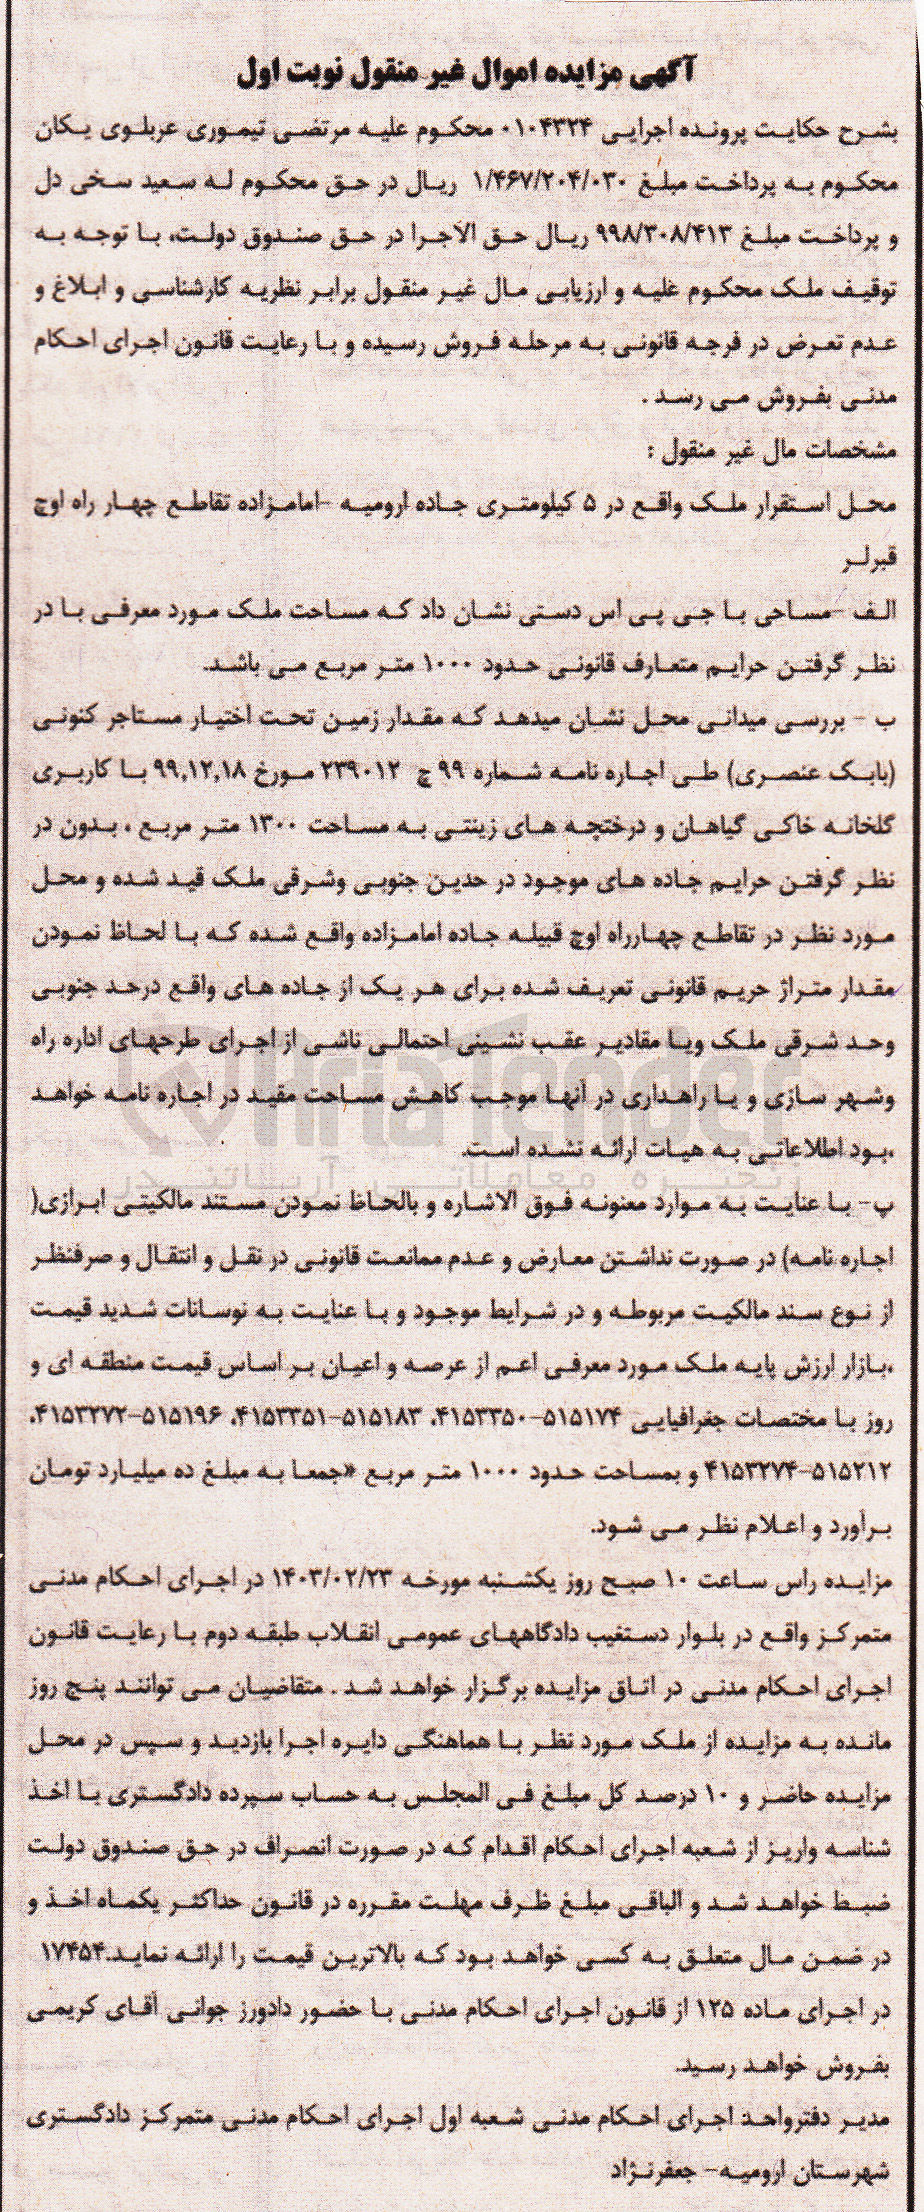 آگهی مزایده اموال غیر منقول نوبت اول
بشرح حکایت پرونده اجرایی ۰۱۰۴۳۲۴ محکوم علیه مرتضی تیموری عربلوی یکان
محکوم به پرداخت مبلغ ۱/۴۶۷/۲۰۴/۰۳۰ ریال در حق محکوم له سعید سخی دل
و پرداخت مبلغ ۹۹۸/۳۰۸/۴۱۳ ریال حق الاجرا در حق صندوق دولت، با توجه به
توقیف ملک محکوم علیه و ارزیابی مال غیر منقول برابر نظریه کارشناسی و ابلاغ و
عدم تعرض در فرجه قانونی به مرحله فروش رسیده و با رعایت قانون اجرای احکام
مدنی بفروش می رسد .
مشخصات مال غیر منقول :
محل استقرار ملک واقع در ۵ کیلومتری جاده ارومیه -امامزاده تقاطع چهار راه اوچ
قبرلر
الف -مساحی با جی پی اس دستی نشان داد که مساحت ملک مورد معرفی با در
نظر گرفتن حرایم متعارف قانونی حدود ۱۰۰۰ متر مربع می باشد.
ب - بررسی میدانی محل نشان میدهد که مقدار زمین تحت اختیار مستاجر کنونی
(بابک عنصری) طی اجاره نامه شماره ۹۹ ج ۲۳۹۰۱۲ مورخ ۹۹,۱۲,۱۸ با کاربری
گلخانه خاکی گیاهان و درختچه های زینتی به مساحت ۱۳۰۰ متر مربع ، بدون در
نظر گرفتن حرایم جاده های موجود در حدین جنوبی وشرقی ملک قید شده و محل
مورد نظر در تقاطع چهارراه اوچ قبیله جاده امامزاده واقع شده که با لحاظ نمودن
مقدار متراژ حریم قانونی تعریف شده برای هر یک از جاده های واقع درحد جنوبی
وحد شرقی ملک ویا مقادیر عقب نشینی احتمالی ناشی از اجرای طرحهای اداره راه
وشهر سازی و یا راهداری در آنها موجب کاهش مساحت مقید در اجاره نامه خواهد
،بود اطلاعاتی به هیات ارائه نشده است.
پ- با عنایت به موارد معنونه فوق الاشاره و بالحاظ نمودن مستند مالکیتی ابرازی(
اجاره نامه) در صورت نداشتن معارض و عدم ممانعت قانونی در نقل و انتقال و صرفنظر
از نوع سند مالکیت مربوطه و در شرایط موجود و با عنایت به نوسانات شدید قیمت
،بازار ارزش پایه ملک مورد معرفی اعم از عرصه و اعیان بر اساس قیمت منطقه ای و
روز با مختصات جغرافیایی ۵۱۵۱۷۴-۴۱۵۳۳۵۰، ۵۱۵۱۸۳-۴۱۵۳۳۵۱، ۵۱۵۱۹۶-۴۱۵۳۲۷۲،
۵۱۵۲۱۲-۴۱۵۳۲۷۴ و بمساحت حدود ۱۰۰۰ متر مربع «جمعا به مبلغ ده میلیارد تومان
برآورد و اعلام نظر می شود.
مزایده راس ساعت ۱۰ صبح روز یکشنبه مورخه ۱۴۰۳/۰۲/۲۳ در اجرای احکام مدنی
متمرکز واقع در بلوار دستغیب دادگاههای عمومی انقلاب طبقه دوم با رعایت قانون
اجرای احکام مدنی در اتاق مزایده برگزار خواهد شد . متقاضیان می توانند پنج روز
مانده به مزایده از ملک مورد نظر با هماهنگی دایره اجرا بازدید و سپس در محل
مزایده حاضر و ۱۰ درصد کل مبلغ فی المجلس به حساب سپرده دادگستری با اخذ
شناسه واریز از شعبه اجرای احکام اقدام که در صورت انصراف در حق صندوق دولت
ضبط خواهد شد و الباقی مبلغ ظرف مهلت مقرره در قانون حداکثر یکماه اخذ و
در ضمن مال متعلق به کسی خواهد بود که بالاترین قیمت را ارائه نماید.۱۷۴۵۴
در اجرای ماده ۱۲۵ از قانون اجرای احکام مدنی با حضور دادورز جوانی آقای کریمی
بفروش خواهد رسید.
مدیر دفترواحد اجرای احکام مدنی شعبه اول اجرای احکام مدنی متمرکز دادگستری
شهرستان ارومیه- جعفرنژاد
AriaTender
زنجیره معاملاتی آریاتندر